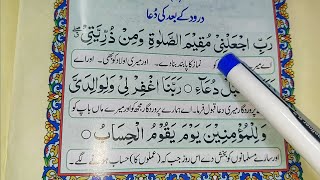 درود کے بعد کی دُعا
رَبِّ اجْعَلْنِیْ مُقِیْمَ الصَّلٰوةِ وَمِنْ ذُرِّیَّتِیْ
اے میرے کو نماز کا پابند بنا دے۔ اور میری اولاد کو بھی۔ اور اے
دُعَآءِ ○ رَبَّنَا اغْفِرْ لِیْ وَلِوَالِدَیَّ
پروردگار میری دعا قبول فرما۔ اے ہمارے پروردگار مجھ کو اور میرے ماں باپ کو
وَلِلْمُؤْمِنِیْنَ یَوْمَ یَقُوْمُ الْحِسَابُ ○
اور سارے مسلمانوں کو بخش دے اس روز جب کہ (عملوں کا) حساب ہونے لگے۔